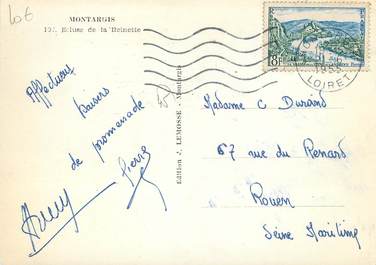 10€
MONTARGIS
Ecluse de la Reinette
Affectueux
baisers
de promenade
Pierre
Edition J. LEMOSSE - Montargis
18F
LOIRET
Madame C Durand
67 rue du Renard
Rouen
Seine Maritime